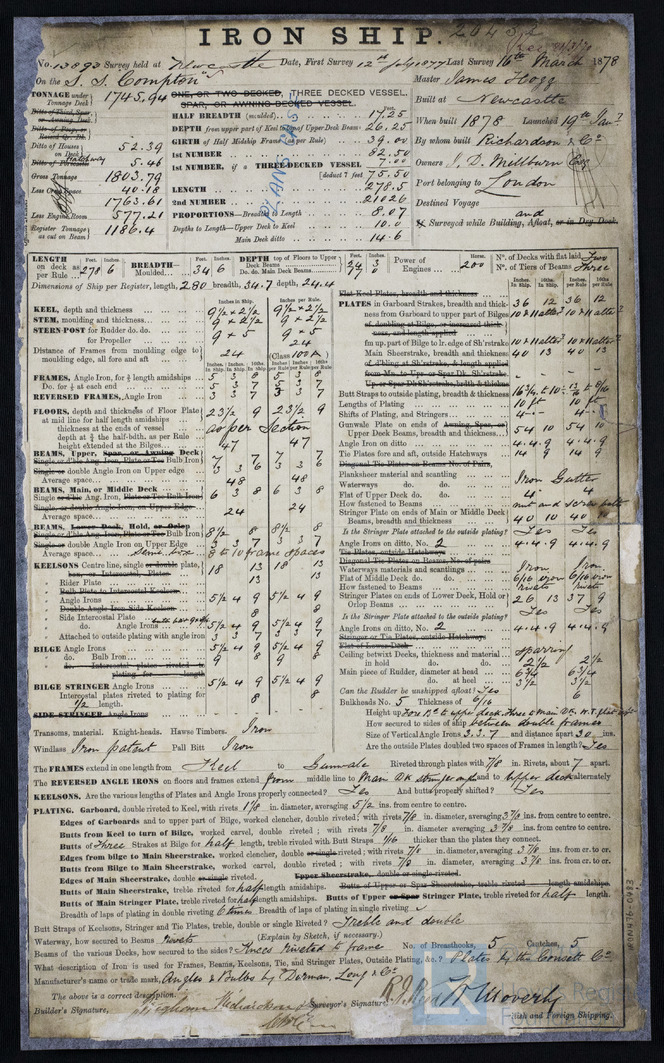 IRON SHIP.
No. 13893 Survey held at Newcastle Date, First Survey 12th July 1877 Last Survey 16th March 1878
On the S. S. Compton Master James Hogg
TONNAGE under Tonnage Deck 1745.94
Ditto of Houses on Deck 52.39
5.46
Gross Tonnage 1803.79
Less Crew Space 40.18
1763.61
Less Engine Room 577.21
Register Tonnage as cut on Beam 1186.4
ONE, OR TWO DECKED, THREE DECKED VESSEL.
SPAR, OR AWNING-DECKED VESSEL.
HALF BREADTH (moulded) 17.25
DEPTH from upper part of Keel to top of Upper Deck Beams 26.25
GIRTH of Half Midship Frame (as per Rule) 39.00
1st NUMBER 82.50
1st NUMBER, if a THREE-DECKED VESSEL 7.00
[deduct 7 feet 75.50
LENGTH 278.5
2nd NUMBER 21026
PROPORTIONS—Breadths to Length 8.07
Depths to Length—Upper Deck to Keel 10.0
Main Deck ditto 14.6
Built at Newcastle
When built 1878 Launched 19th Jan.
By whom built Richardson & Co
Owners J. D. Millburn Esq
Port belonging to London
Destined Voyage
Surveyed while Building, Afloat, and or in Dry Dock.
LENGTH on deck as per Rule 278 6 BREADTH— Moulded 34 6 DEPTH top of Floors to Upper Deck Beams 24 3
Do. do. Main Deck Beams 17 0
Power of Engines 200 Horse.
No. of Decks with flat laid Two
No. of Tiers of Beams Three
Dimensions of Ship per Register, length, 280 breadth, 34.7 depth, 24.4
KEEL, depth and thickness 9½ × 2½ 9½ × 2½
STEM, moulding and thickness 9 × 2½ 9 × 2½
STERN-POST for Rudder do. do. 9 × 5 9 × 5
for Propeller
Distance of Frames from moulding edge to moulding edge, all fore and aft 24 24
(Class 100A)
FRAMES, Angle Iron, for ¾ length amidships 5 3 8 5 3 8
Do. for ¼ at each end 5 3 7 5 3 7
REVERSED FRAMES, Angle Iron 3 3 7 3 3 7
FLOORS, depth and thickness of Floor Plate at mid line for half length amidships 23½ 9 23½ 9
thickness at the ends of vessel
depth at ¾ the half-bdth. as per Rule as per Section
height extended at the Bilges 47 47
BEAMS, Upper, Spar, or Awning Deck
Single or d'ble Ang. Iron, Plate or Tee Bulb Iron 7 7 7 7
Single or double Angle Iron on Upper edge 3 3 6 3 3 6
Average space 48 48
BEAMS, Main, or Middle Deck
Single or d'ble Ang. Iron, Plate or Tee Bulb Iron 6 3 8 6 3 8
Single, or double Angle Iron, on Upper Edge
Average space 24 24
BEAMS, Lower Deck, Hold, or Orlop
Single or d'ble Ang. Iron, Plate or Tee Bulb Iron 8½ 8 8½ 8
Single or double Angle Iron on Upper Edge 3 3 7 3 3 7
Average space 8 to 10 frame spaces
KEELSONS Centre line, single or double plate, box, or Intercostal, Plates 18 13 18 13
Rider Plate 13 13
Bulb Plate to Intercostal Keelson
Angle Irons 5½ 4 9 5½ 4 9
Double Angle Iron Side Keelson
Side Intercostal Plate 8 8
do. Angle Irons 5½ 4 9 5½ 4 9
Attached to outside plating with angle iron 3 3 7 3 3 7
BILGE Angle Irons 5½ 4 9 5½ 4 9
do. Bulb Iron 9 8 9 8
do. Intercostal plates riveted to plating for length
BILGE STRINGER Angle Irons 5½ 4 9 5½ 4 9
Intercostal plates riveted to plating for ½ length. 8 8
SIDE STRINGER Angle Irons
Transoms, material. Knight-heads. Hawse Timbers. Iron
Windlass Iron patent Pall Bitt Iron
Flat Keel Plates, breadth and thickness
PLATES in Garboard Strakes, breadth and thickness 36 12 36 12
from Garboard to upper part of Bilges
of doubling at Bilge, or increased thickness, and length applied
fm. up. part of Bilge to lr. edge of Sh'rstrake
Main Sheerstrake, breadth and thickness 40 13 40 13
of d'bling at Sh'rstrake, & length applied
from Mn. to Up. or Spar Dk. Sh'rstrake
Up. or Spar Dk Sh'rstrake, brdth & thickns
Butt Straps to outside plating, breadth & thickness
Lengths of Plating 10 ft 10 ft
Shifts of Plating, and Stringers
Gunwale Plate on ends of Awning, Spar, or Upper Deck Beams, breadth and thickness 54 10 54 10
Angle Iron on ditto 4.4.9 4.4.9
Tie Plates fore and aft, outside Hatchways 14 9 14 9
Diagonal Tie Plates on Beams No. of Pairs,
Planksheer material and scantling
Waterways do. do. Iron Gutter
Flat of Upper Deck do. do. 4 4
How fastened to Beams nut and screw bolts
Stringer Plate on ends of Main or Middle Deck Beams, breadth and thickness 40 10 40 10
Is the Stringer Plate attached to the outside plating? Yes Yes
Angle Irons on ditto, No. 2 4.4.9 4.4.9
Tie Plates, outside Hatchways
Diagonal Tie Plates on Beams, No. of pairs
Waterways materials and scantlings Iron
Flat of Middle Deck do. do. 6/16 iron 6/16 iron
How fastened to Beams rivets
Stringer Plates on ends of Lower Deck, Hold or Orlop Beams 26 13 37 9
Is the Stringer Plate attached to the outside plating? Yes Yes
Angle Irons on ditto, No. 2 4.4.9 4.4.9
Stringer or Tie Plates, outside Hatchways
Flat of Lower Deck
Ceiling betwixt Decks, thickness and material sparring
in hold do. do. 2½ 2½
Main piece of Rudder, diameter at head 6¾ 6¾
do. at heel 3½ 3½
Can the Rudder be unshipped afloat? Yes
Bulkheads No. 5 Thickness of 6/16 6
How secured to sides of ship between double frames
Size of Vertical Angle Irons 3.3.7 and distance apart 30 ins.
Are the outside Plates doubled two spaces of Frames in length? Yes
The FRAMES extend in one length from Keel to Gunwale Riveted through plates with 7/8 in. Rivets, about 7 apart.
The REVERSED ANGLE IRONS on floors and frames extend from middle line to Main Dk stringer and to upper deck alternately
KEELSONS. Are the various lengths of Plates and Angle Irons properly connected? Yes And butts properly shifted? Yes
PLATING. Garboard, double riveted to Keel, with rivets 1 1/8 in. diameter, averaging 5½ ins. from centre to centre.
Edges of Garboards and to upper part of Bilge, worked clencher, double riveted; with rivets 7/8 in. diameter, averaging 3 7/8 ins. from centre to centre.
Butts from Keel to turn of Bilge, worked carvel, double riveted; with rivets 7/8 in. diameter averaging 3 7/8 ins. from centre to centre.
Butts of Three Strakes at Bilge for half length, treble riveted with Butt Straps 1/16 thicker than the plates they connect.
Edges from bilge to Main Sheerstrake, worked clencher, double or single riveted; with rivets 7/8 in. diameter, averaging 3 7/8 ins. from cr. to cr.
Butts from Bilge to Main Sheerstrake, worked carvel, double riveted; with rivets 7/8 in. diameter, averaging 3 7/8 ins. from cr. to cr.
Edges of Main Sheerstrake, double or single riveted. Upper Sheerstrake, double or single riveted.
Butts of Main Sheerstrake, treble riveted for half length amidships. Butts of Upper or Spar Sheerstrake, treble riveted for length amidships.
Butts of Main Stringer Plate, treble riveted for half length amidships. Butts of Upper or Spar Stringer Plate, treble riveted for half length.
Breadth of laps of plating in double riveting 6 times Breadth of laps of plating in single riveting
Butt Straps of Keelsons, Stringer and Tie Plates, treble, double or Single Riveted? Treble and double
Waterway, how secured to Beams rivets (Explain by Sketch, if necessary.)
Beams of the various Decks, how secured to the sides? Knees riveted to frame No. of Breasthooks, 5 Crutches, 5
What description of Iron is used for Frames, Beams, Keelsons, Tie, and Stringer Plates, Outside Plating, &c.? Plates by the Consett Co
Manufacturer's name or trade mark, Angles & Bulbs by Dorman, Long & Co
The above is a correct description.
Builder's Signature, Surveyor's Signature,
British and Foreign Shipping.